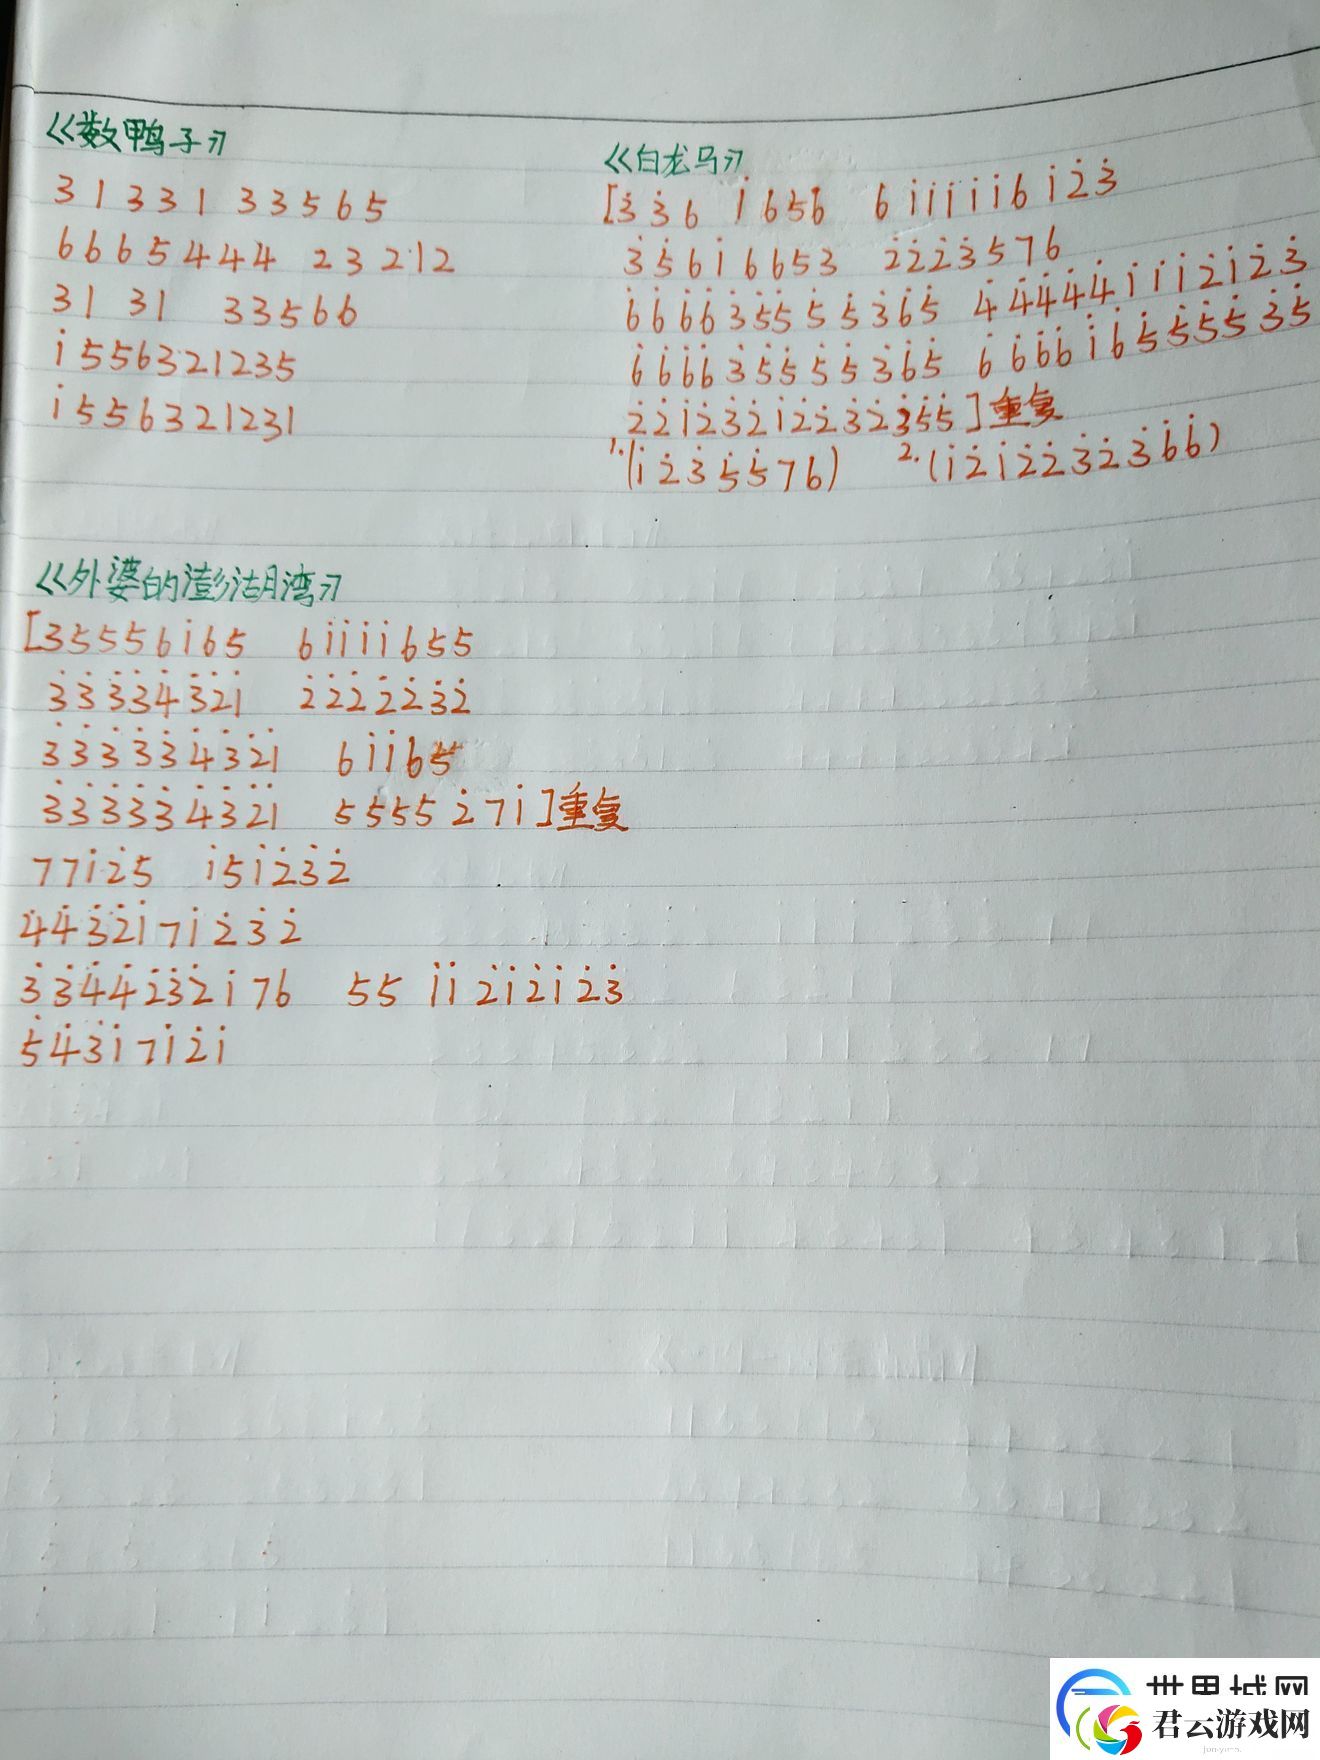 《数鸭子》
3 1 3 3 1 3 3 5 6 5
6 6 6 5 4 4 4 2 3 2 1 2
3 1 3 1 3 3 5 6 6
i̇ 5 5 6 3 2 1 2 3 5
i̇ 5 5 6 3 2 1 2 3 1
《白龙马》
[3̇ 3̇ 6 1̇ 6 5 6 6 1̇ 1̇ 1̇ 1̇ 1̇ 6 1̇ 2̇ 3̇
3̇ 5̇ 6 1̇ 6 6 5 3 2̇ 2̇ 2̇ 3̇ 5 7 6
6̇ 6̇ 6̇ 6̇ 3̇ 5̇ 5̇ 5̇ 5̇ 3̇ 6̇ 5̇ 4̇ 4̇ 4̇ 4̇ 4̇ 1̇ 1̇ 1̇ 2̇ 1̇ 2̇ 3̇
6̇ 6̇ 6̇ 6̇ 3̇ 5̇ 5̇ 5̇ 5̇ 3̇ 6̇ 5̇ 6̇ 6̇ 6̇ 6̇ 1̇ 6̇ 5̇ 5̇ 5̇ 5̇ 3̇ 5̇
2̇ 2̇ 1̇ 2̇ 3̇ 2̇ 1̇ 2̇ 2̇ 3̇ 2̇ 3̇ 5̇ 5̇ ]重复
1.(1̇ 2̇ 3̇ 5̇ 5̇ 7 6) 2.(1̇ 2̇ 1̇ 2̇ 2̇ 3̇ 2̇ 3̇ 6̇ 6̇)
《外婆的澎湖湾》
[3 5 5 5 6 1̇ 6 5 6 1̇ 1̇ 1̇ 1̇ 6 5 5
3̇ 3̇ 3̇ 3̇ 4̇ 3̇ 2̇ 1̇ 2̇ 2̇ 2̇ 2̇ 2̇ 3̇ 2̇
3̇ 3̇ 3̇ 3̇ 3̇ 4̇ 3̇ 2̇ 1̇ 6 1̇ 1̇ 6 5
3̇ 3̇ 3̇ 3̇ 3̇ 4̇ 3̇ 2̇ 1̇ 5 5 5 5 2̇ 7 1̇ ]重复
7 7 1̇ 2̇ 5 1̇ 5 1̇ 2̇ 3̇ 2̇
4̇ 4̇ 3̇ 2̇ 1̇ 7 1̇ 2̇ 3̇ 2̇
3̇ 3̇ 4̇ 4̇ 2̇ 3̇ 2̇ 1̇ 7 6 5 5 1̇ 1̇ 2̇ 1̇ 2̇ 1̇ 2̇ 3̇
5̇ 4̇ 3̇ 1̇ 7 1̇ 2̇ 1̇
君云游戏网